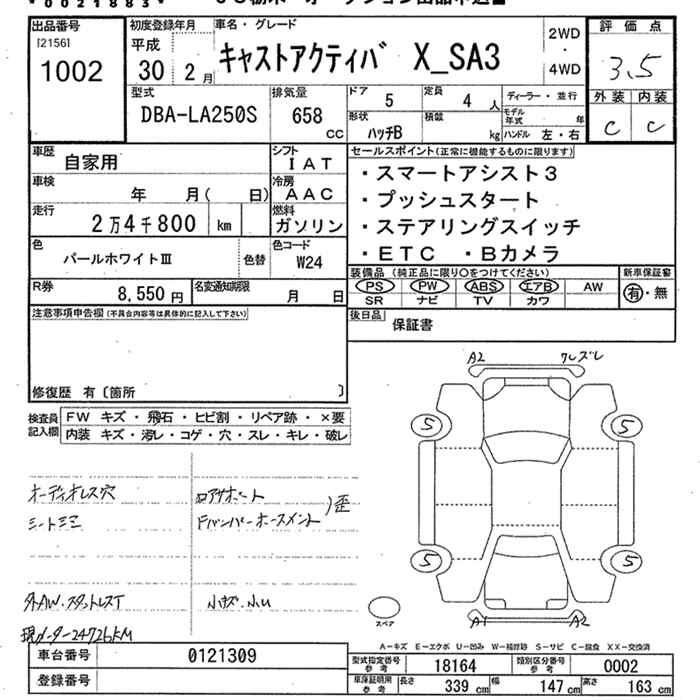 00021883
出品番号
[2156]
1002
初度登録年月
平成
30 年 2 月
車名・グレード
キャストアクティバ X_SA3
2WD
・
4WD
評価点
3.5
外装 内装
C C
型式
DBA-LA250S
排気量
658 CC
ドア 5
定員 4 人
形状 ハッチB
積載 kg
ディーラー・並行
モデル年式 年
ハンドル 左・右
車歴 自家用
シフト IAT
車検 年 月( 日)
冷房 AAC
走行 2万4千800 km
燃料 ガソリン
色 パールホワイトⅢ
色替
色コード W24
R券 8,550円
名変通知期限 月 日
セールスポイント(正常に機能するものに限ります)
・スマートアシスト3
・プッシュスタート
・ステアリングスイッチ
・ETC ・Bカメラ
装備品(純正品に限り〇をつけてください)
新車保証書
PS PW ABS エアB AW
SR ナビ TV カワ
有・無
注意事項申告欄(不具合内容等は具体的に記入して下さい)
後日品 保証書
修復歴 有〔箇所 〕
検査員記入欄
FW キズ・飛石・ヒビ割・リペア跡・×要
内装 キズ・汚レ・コゲ・穴・スレ・キレ・破レ
A2
5 5
5 5
A1 A2
スペア
オーディオレス穴
シートシミ
コアサポート
バンパーホースメント
)歪
外AW.スタットレスT
小キズ.小U
現メーター24726KM
A-キズ E-エクボ U-凹み W-補修跡 S-サビ C-腐食 XX-交換済
車台番号 0121309
登録番号
型式指定番号参考 18164
類別区分番号参考 0002
車庫証明用参考 長さ 339 cm 幅 147 cm 高さ 163 cm